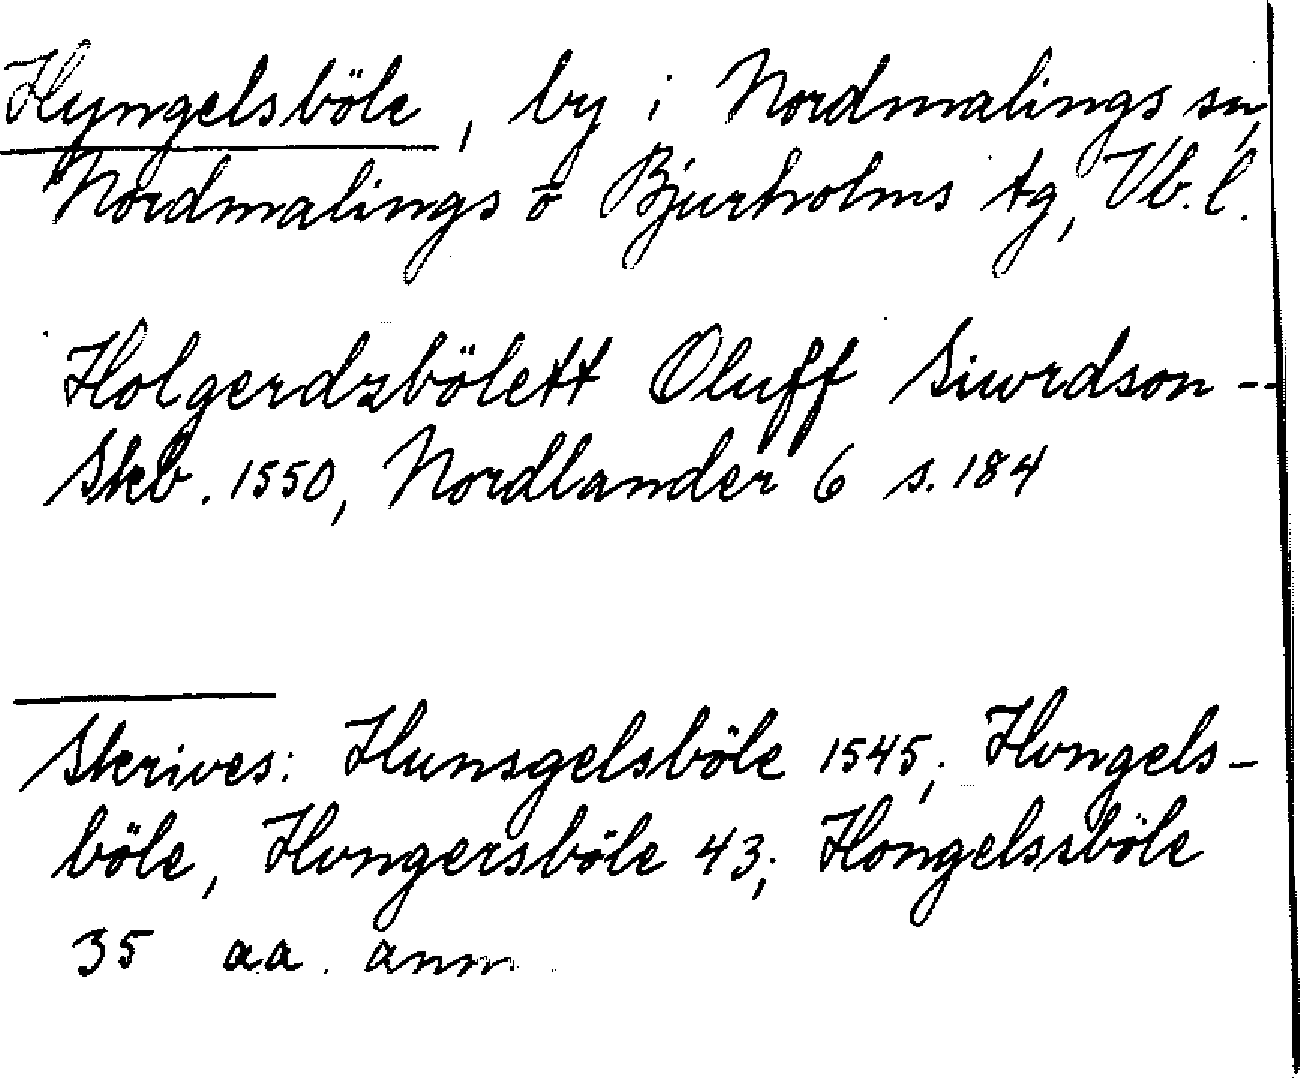 Hyngelsböle, by i Nordmalings sn,
Nordmalings o Bjurholms tg, Vb. l.
Holgerdzbölett Oluff Siwrdson --
Skb. 1550, Nordlander 6 s. 184
Skrives: Hunsgelsböle 1545; Hvngels-
böle, Hvngersböle 43; Hongelssböle
35 aa. anm.